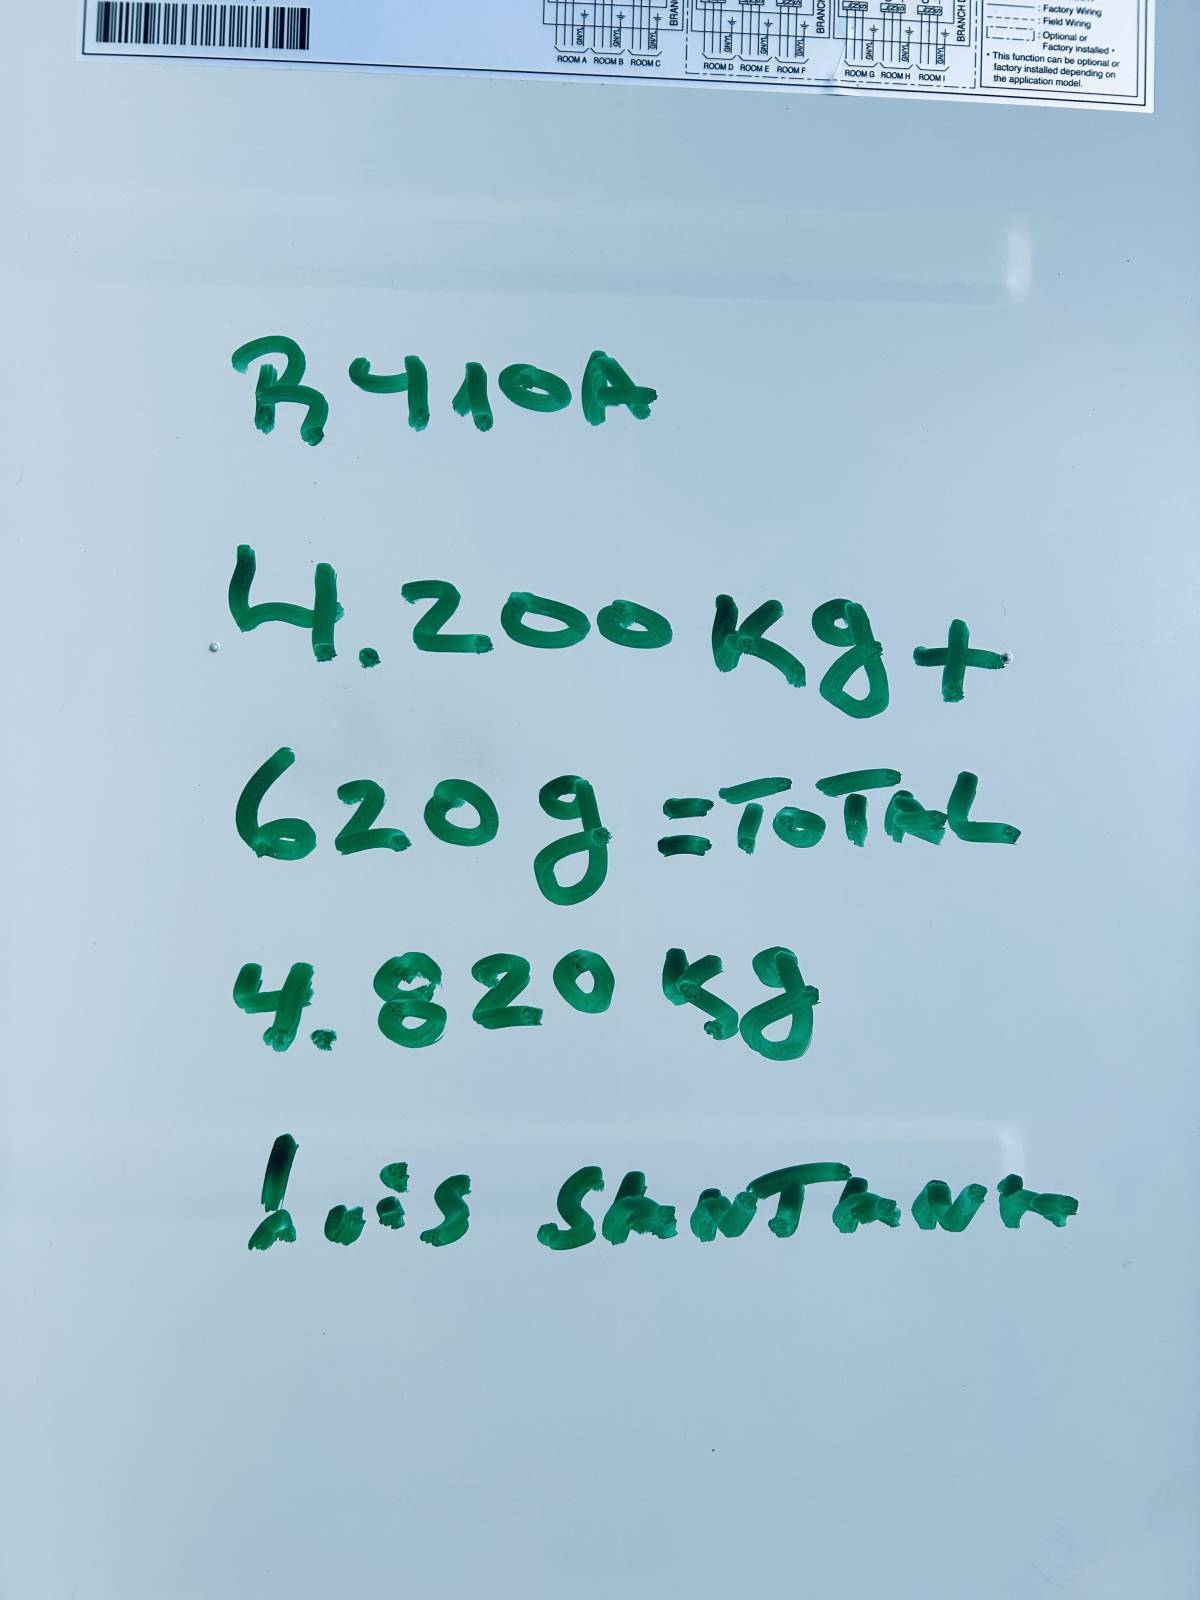 BRANCH
BRANCH
BRANCH
GNYL GNYL GNYL GNYL GNYL GNYL GNYL GNYL GNYL
ROOM A ROOM B ROOM C ROOM D ROOM E ROOM F ROOM G ROOM H ROOM I
: Factory Wiring
: Field Wiring
: Optional or
Factory installed *
* This function can be optional or
factory installed depending on
the application model.
R410A
4.200Kg+
620g=TOTAL
4.820Kg
Luis SANTANA